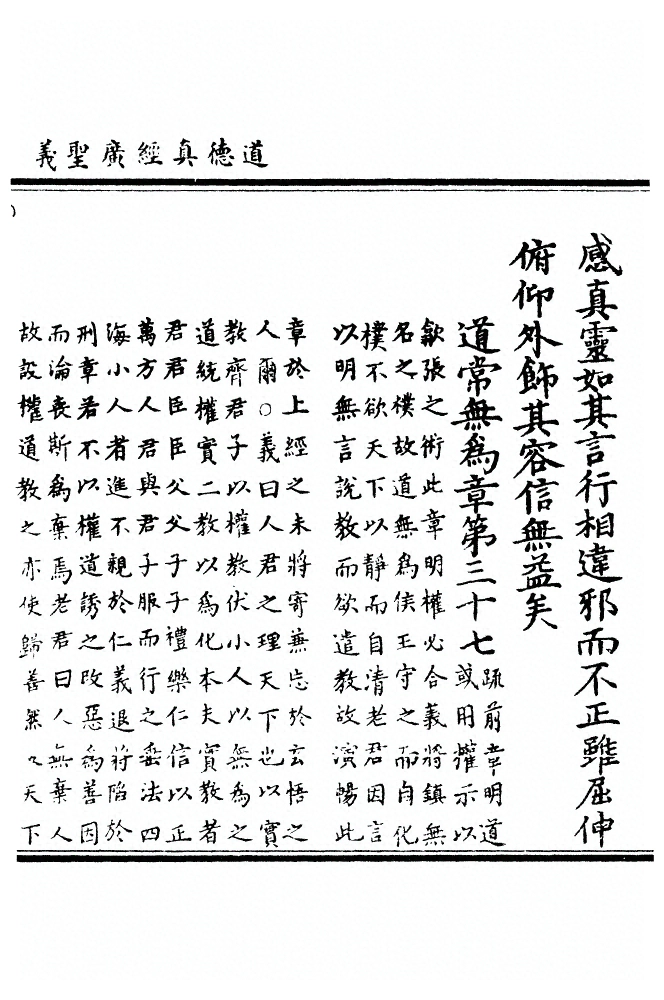 道德真經廣聖義
感真靈如其言行相違邪而不正雖屈伸
俯仰外飾其容信無益矣
道常無爲章第三十七
疏前章明道
或用權示以
歙張之術此章明權必合義將鎮無
名之樸故道無爲侯王守之而自化
樸不欲天下以靜而自清老君因言
以明無言說教而欲遣教故演暢此
章於上經之末將寄無忘於玄悟之
人爾○義曰人君之理天下也以實
教齊君子以權教伏小人以無為之
道統權實二教以爲化本夫實教者
君君臣臣父父子子禮樂仁信以正
萬方人君與君子服而行之垂法四
海小人者進不親於仁義退將陷於
刑章若不以權道誘之改惡為善因
而淪喪斯爲棄焉老君曰人無棄人
故設權道教之亦使歸善然天下